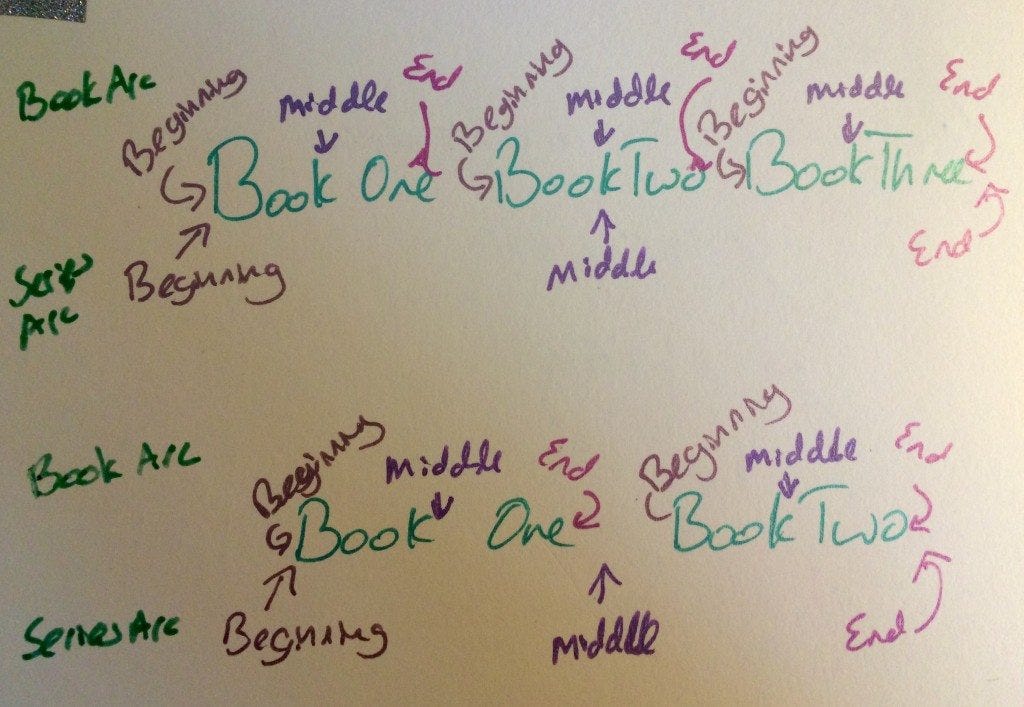 Book Arc Beginning middle End Beginning middle End Beginning middle End
Book One Book Two Book Three
Series Arc Beginning Middle End
Book Arc Beginning middle End Beginning middle End
Book One Book Two
Series Arc Beginning middle End